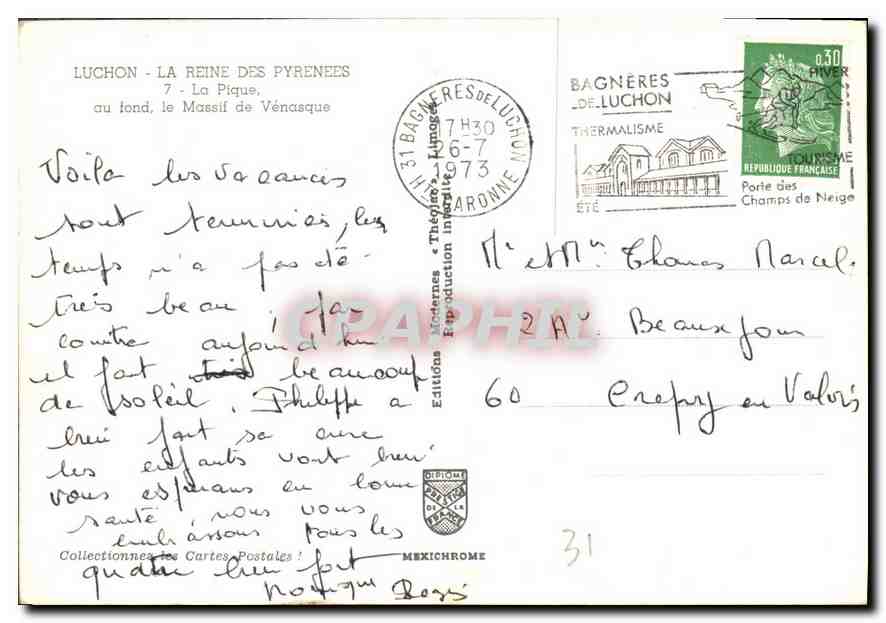 LUCHON - LA REINE DES PYRENEES
7 - La Pique,
au fond, le Massif de Vénasque
Voila les vacances
sont terminées, les
temps n'a pas été
très beau, par
contre aujourd'hui
il fait très beaucoup
de soleil. Philippe a
bien fait sa cure
les enfants vont bien
vous esperans en bonne
santé, nous vous
embrassons tous les
quatre bien fort
Monique Roger
Collectionnez les Cartes Postales !
Editions Modernes « Théojac », Limoges
Reproduction interdite
31 BAGNERES DE LUCHON
17H30
26-7
1973
HTE GARONNE
BAGNÈRES
-DE-LUCHON
THERMALISME
ÉTÉ
HIVER
TOURISME
Porte des
Champs de Neige
0,30
REPUBLIQUE FRANÇAISE
Mr et Mme Thomas Marcel
2 Av. Beausejour
60 Crepy en Valois
DIPLOME
PRESTIGE
DE LA
FRANCE
MEXICHROME
31
CPAPHIL